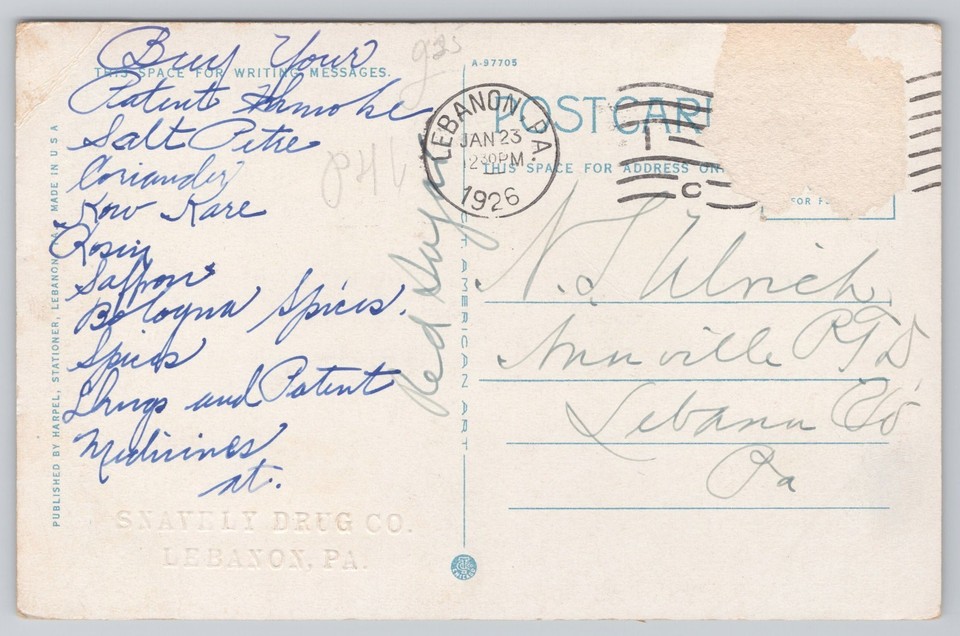 Buy Your
THIS SPACE FOR WRITING MESSAGES.
Patent Hamoke
Salt Petre
Coriander
Kow Kare
Rosin
Saffron
Bologna Spices.
Spices
Drugs and Patent
Medicines
at.
SNAVELY DRUG CO.
LEBANON, PA.
PUBLISHED BY HARPEL, STATIONER, LEBANON, PA. MADE IN U S A
Red Sugar
AMERICAN ART
A-97705
POSTCAR
THIS SPACE FOR ADDRESS ON
LEBANON, PA.
JAN 23
2 30 PM
1926
C
FOR
N. S. Ulrich
Annville RFD
Lebanon Co
Pa